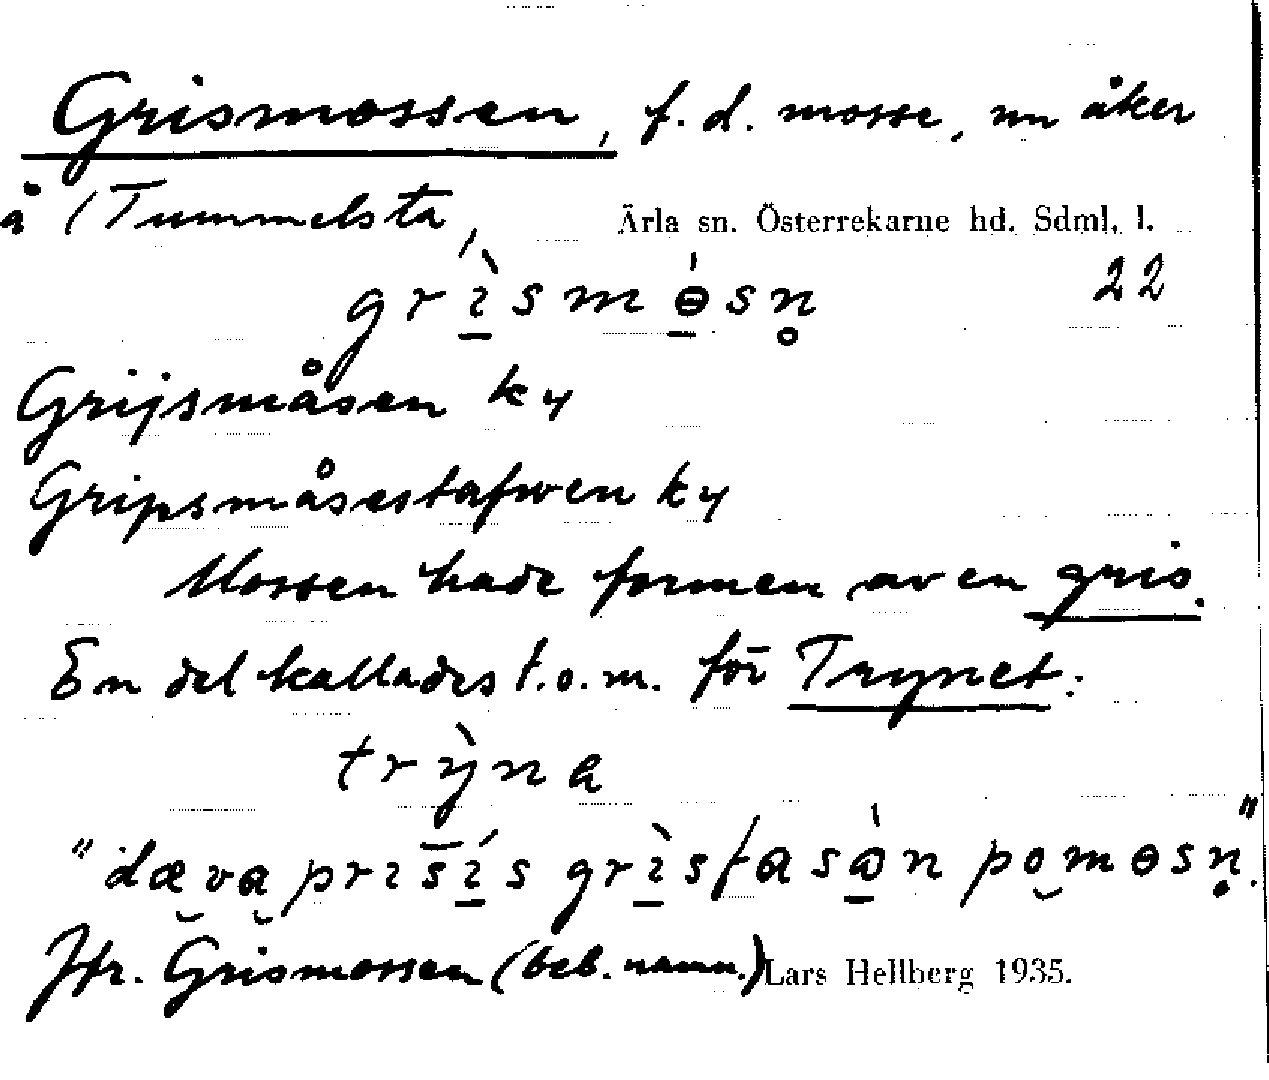 Grismossen, f. d. mosse, nu åker
å (Tummelsta, Ärla sn. Österrekarne hd. Sdml. l.
grı̀smɵ́sn̥ 22
Grijsmåsen k 4
Gripsmåsestafwen k 4
Mossen hade formen av en gris.
En del kallades t.o.m. för Trynet:
trỳna
"dæva prısı́s grı̀sfasɷ́n po mɵsn̥"
Jfr. Grismossen (beb. namn.) Lars Hellberg 1935.